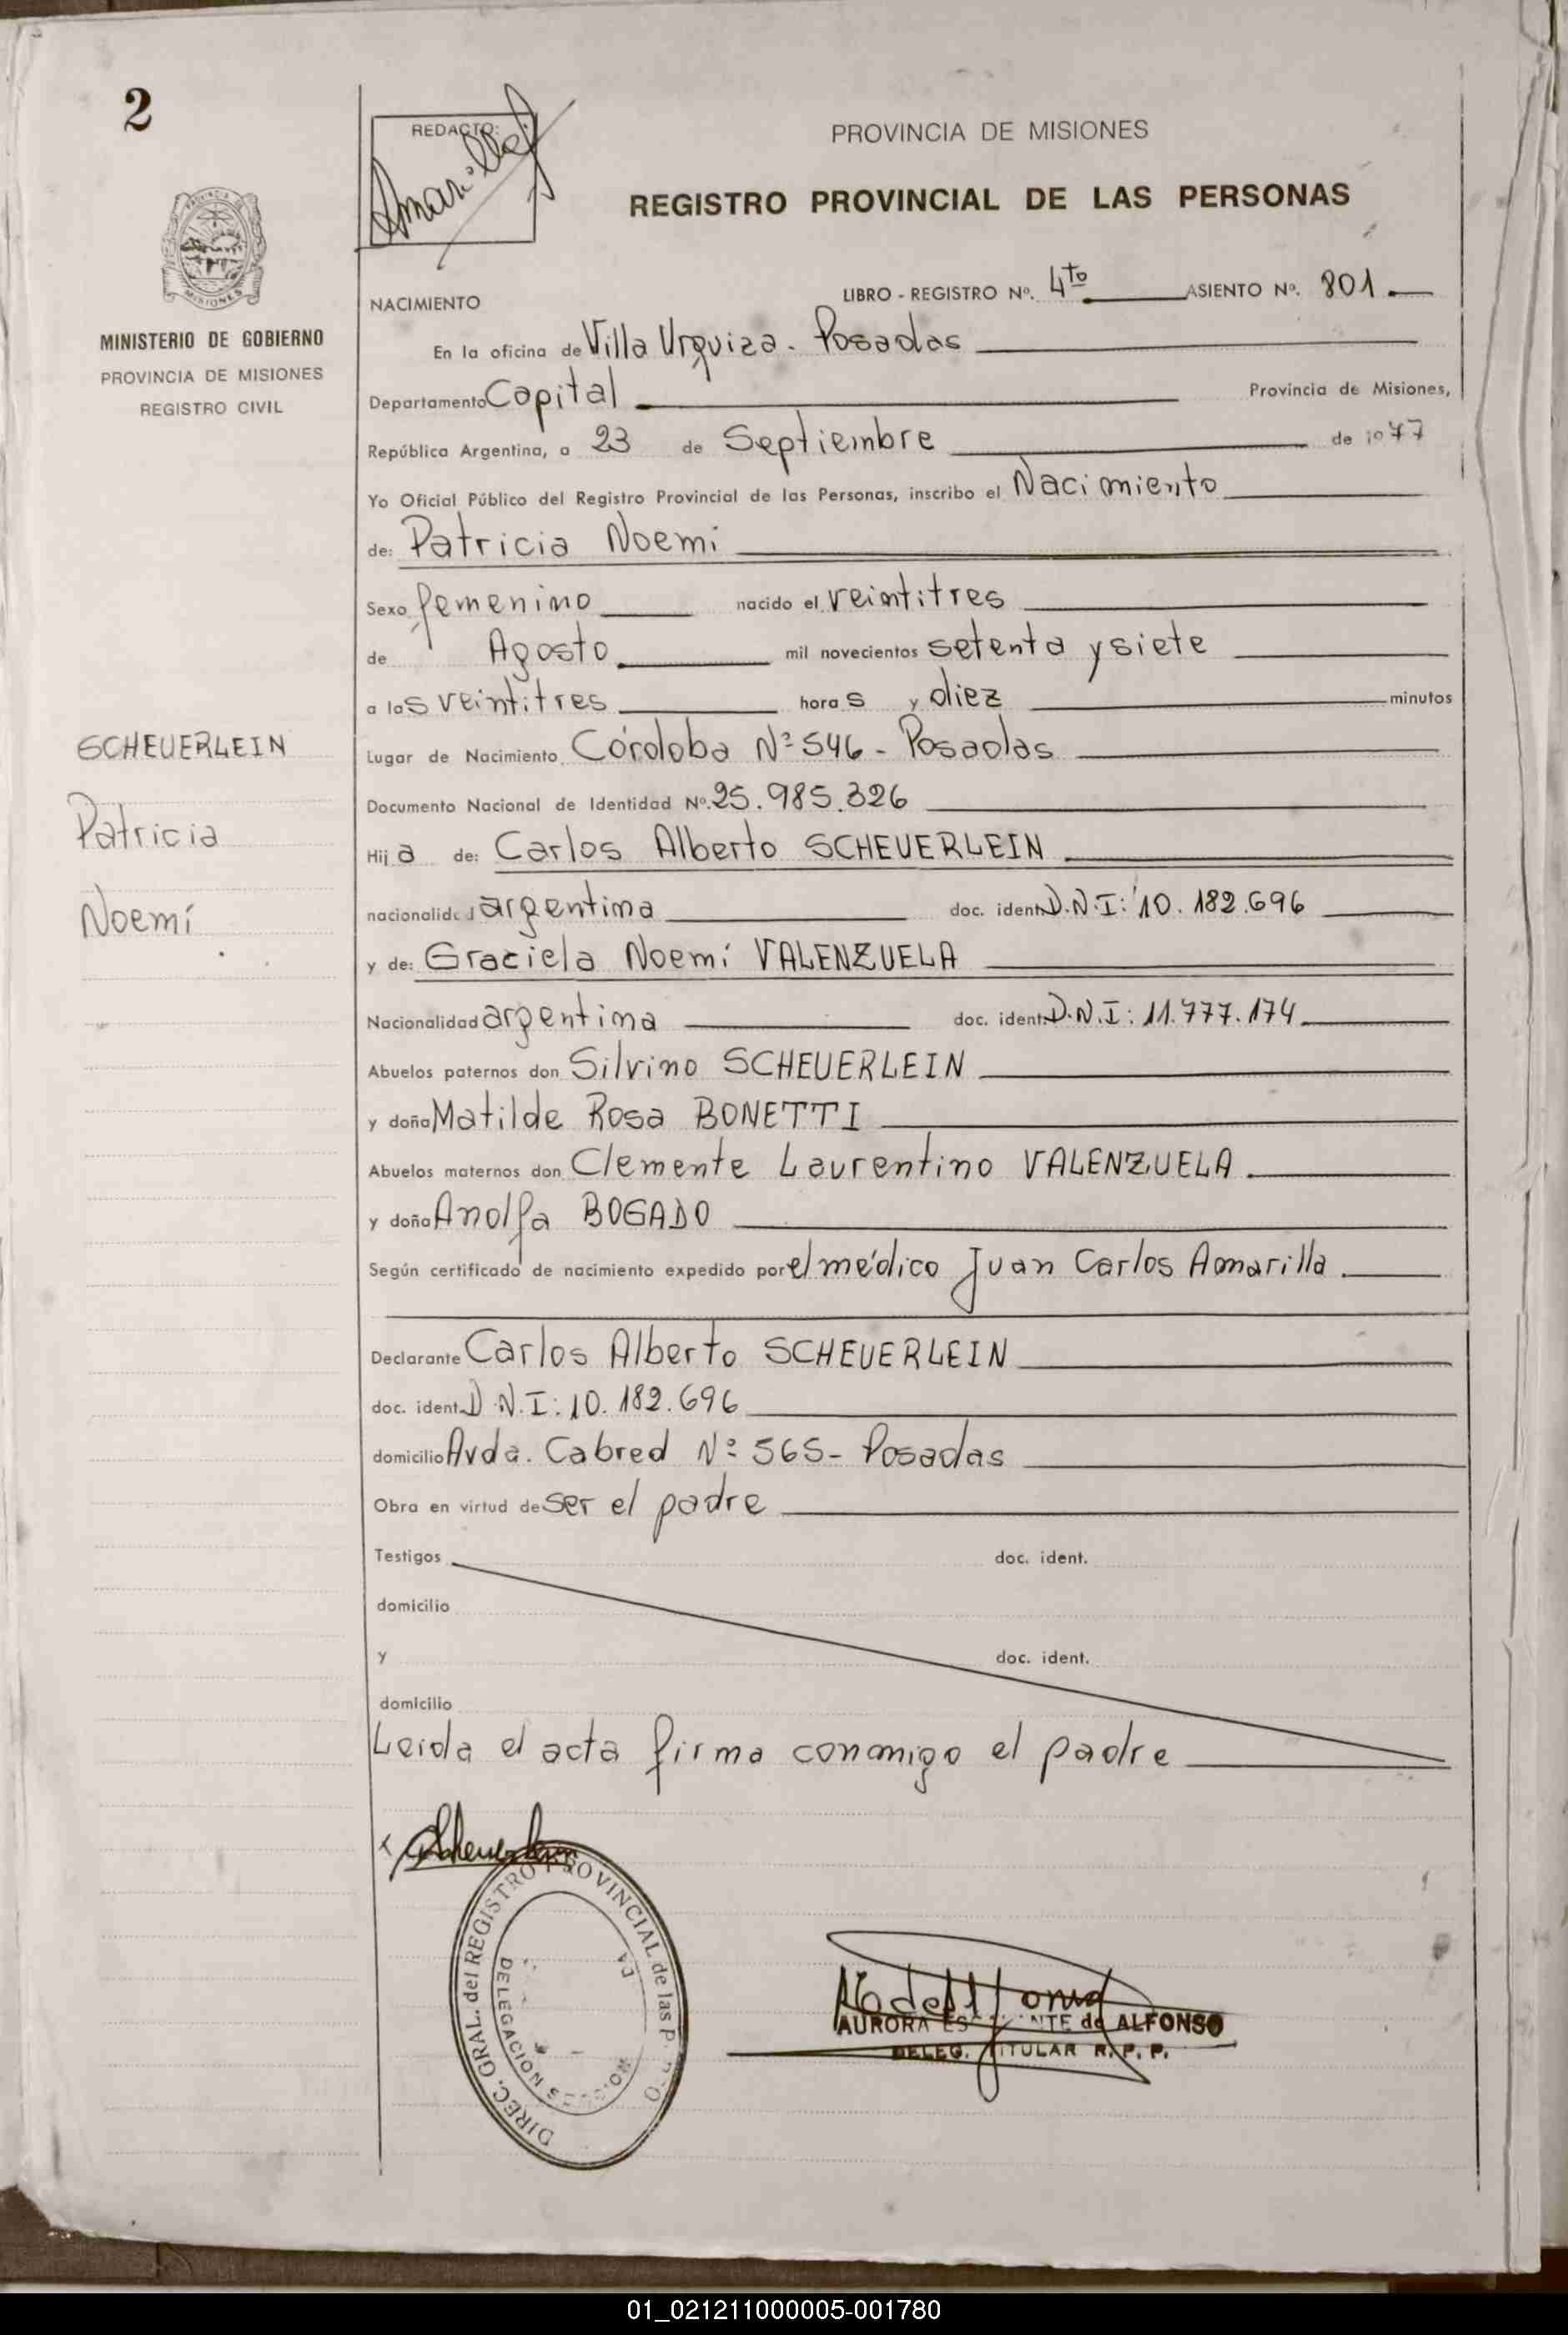 2
REDACTO:
PROVINCIA DE MISIONES
REGISTRO PROVINCIAL DE LAS PERSONAS
MISIONES
MINISTERIO DE GOBIERNO
PROVINCIA DE MISIONES
REGISTRO CIVIL
NACIMIENTO
LIBRO - REGISTRO Nº. 4to ASIENTO Nº. 801
En la oficina de Villa Urquiza - Posadas
Departamento Capital Provincia de Misiones,
República Argentina, a 23 de Septiembre de 1977
Yo Oficial Público del Registro Provincial de las Personas, inscribo el Nacimiento
de: Patricia Noemi
Sexo femenino nacido el veintitres
de Agosto mil novecientos setenta y siete
a las veintitres horas y diez minutos
Lugar de Nacimiento Córdoba Nº 546 - Posadas
Documento Nacional de Identidad Nº. 25.985.326
Hija de: Carlos Alberto SCHEUERLEIN
nacionalidad argentina doc. ident. D.N.I: 10.182.696
y de: Graciela Noemí VALENZUELA
Nacionalidad argentina doc. ident. D.N.I: 11.777.174
Abuelos paternos don Silvino SCHEUERLEIN
y doña Matilde Rosa BONETTI
Abuelos maternos don Clemente Laurentino VALENZUELA
y doña Anolfa BOGADO
Según certificado de nacimiento expedido por el médico Juan Carlos Amarilla
Declarante Carlos Alberto SCHEUERLEIN
doc. ident. D.N.I: 10.182.696
domicilio Avda. Cabred Nº 565 - Posadas
Obra en virtud de ser el padre
Testigos doc. ident.
domicilio
y doc. ident.
domicilio
Leida el acta firma conmigo el padre
SCHEUERLEIN
Patricia
Noemí
DIREC. GRAL. del REGISTRO PROVINCIAL de las
DELEGACION
AURORA de ALFONSO
DELEG. TITULAR R. P. P.
01_021211000005-001780